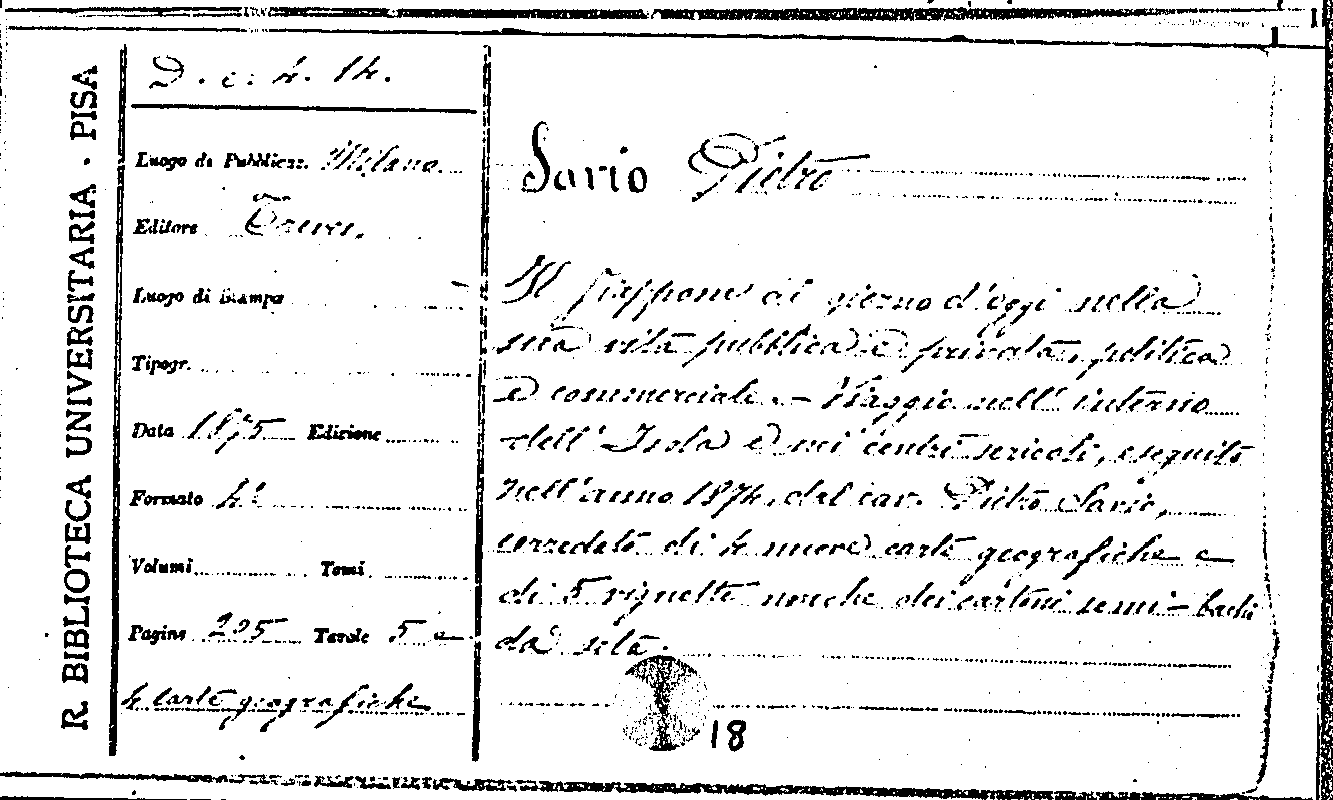 R. BIBLIOTECA UNIVERSITARIA · PISA
D. c. 4. 14.
Luogo di Pubblicaz. Milano.
Editore Treves.
Luogo di Stampa
Tipogr.
Data 1875 Edizione
Formato 4°
Volumi Tomi
Pagine 205 Tavole 5 e
4 carte geografiche
Savio Pietro
Il Giappone al giorno d'oggi nella
sua vita pubblica e privata, politica
e commerciale. – Viaggio nell'interno
dell'Isola e nei centri sericoli, eseguito
nell'anno 1874, dal cav. Pietro Savio,
corredato di 4 nuove carte geografiche e
di 5 vignette nonche dei cartoni semi-bachi
da seta.
18